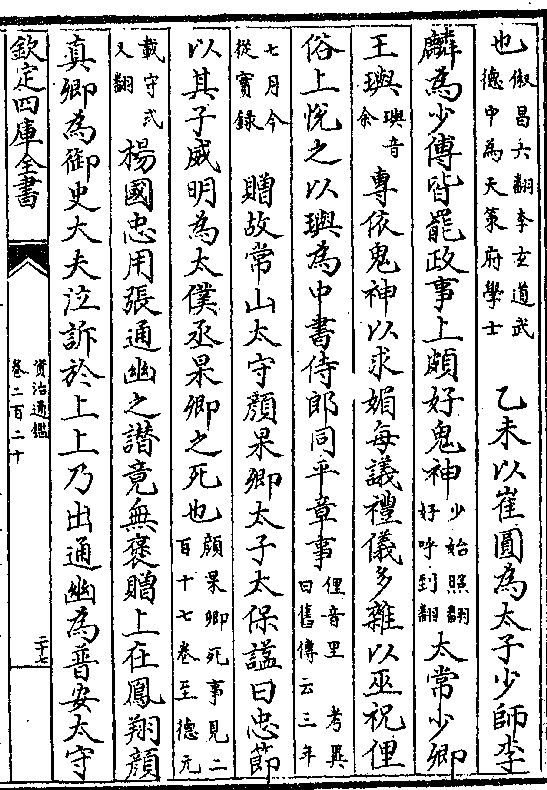 也俶昌六翻李玄道武德中為天策府學士 乙未以崔圓為太子少師李
麟為少傅皆罷政事上頗好鬼神少始照翻好呼到翻太常少卿
王璵璵音余專依鬼神以求媚每議禮儀多雜以巫祝俚
俗上悅之以璵為中書侍郎同平章事俚音里 考異曰舊傳云三年
七月今從實録 贈故常山太守顔杲卿太子太保謚曰忠節
以其子威明為太僕丞杲卿之死也顔杲卿死事見二百十七卷至德元
載守式又翻楊國忠用張通幽之譖竟無褒贈上在鳳翔顔
真卿為御史大夫泣訴於上上乃出通幽為普安太守
欽定四庫全書
資治通鑑
卷二百二十
二十七